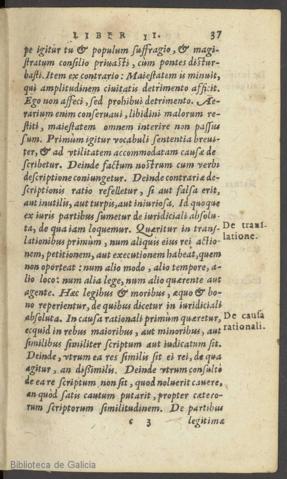 LIBER II. 37
pe igitur tu & populum suffragio, & magi-
stratum consilio priuasti, cum pontes distur-
basti. Item ex contrario: Maiestatem is minuit,
qui amplitudinem ciuitatis detrimento afficit.
Ego non affeci, sed prohibui detrimento. Ae-
rarium enim conseruaui, libidini malorum re-
stiti, maiestatem omnem interire non passus
sum. Primùm igitur vocabuli sententia breui-
ter, & ad vtilitatem accommodatam causæ de-
scribetur. Deinde factum nostrum cum verbi
descriptione coniungetur. Deinde contrariæ de-
scriptionis ratio refelletur, si aut falsa erit,
aut inutilis, aut turpis, aut iniuriosa. Id quoque
ex iuris partibus sumetur de iuridiciali absolu-
ta, de qua iam loquemur. Quæritur in trans-
lationibus primùm, num aliquis eius rei actio-
nem, petitionem, aut executionem habeat, quem
non oporteat: num alio modo, alio tempore, a-
lio loco: num alia lege, num alio quærente aut
agente. Hæc legibus & moribus, æquo & bo-
no reperientur, de quibus dicetur in iuridiciali
absoluta. In causa rationali primùm quæretur,
ecquid in rebus maioribus, aut minoribus, aut
similibus similiter scriptum aut iudicatum sit.
Deinde, vtrum ea res similis sit ei rei, de qua
agitur, an dißimilis. Deinde vtrum consultò
de ea re scriptum non sit, quod noluerit cauere,
an quòd satis cautum putarit, propter cætero-
rum scriptorum similitudinem. De partibus
c 3 legitimæ
De trans-
latione.
De causa
rationali.
Biblioteca de Galicia